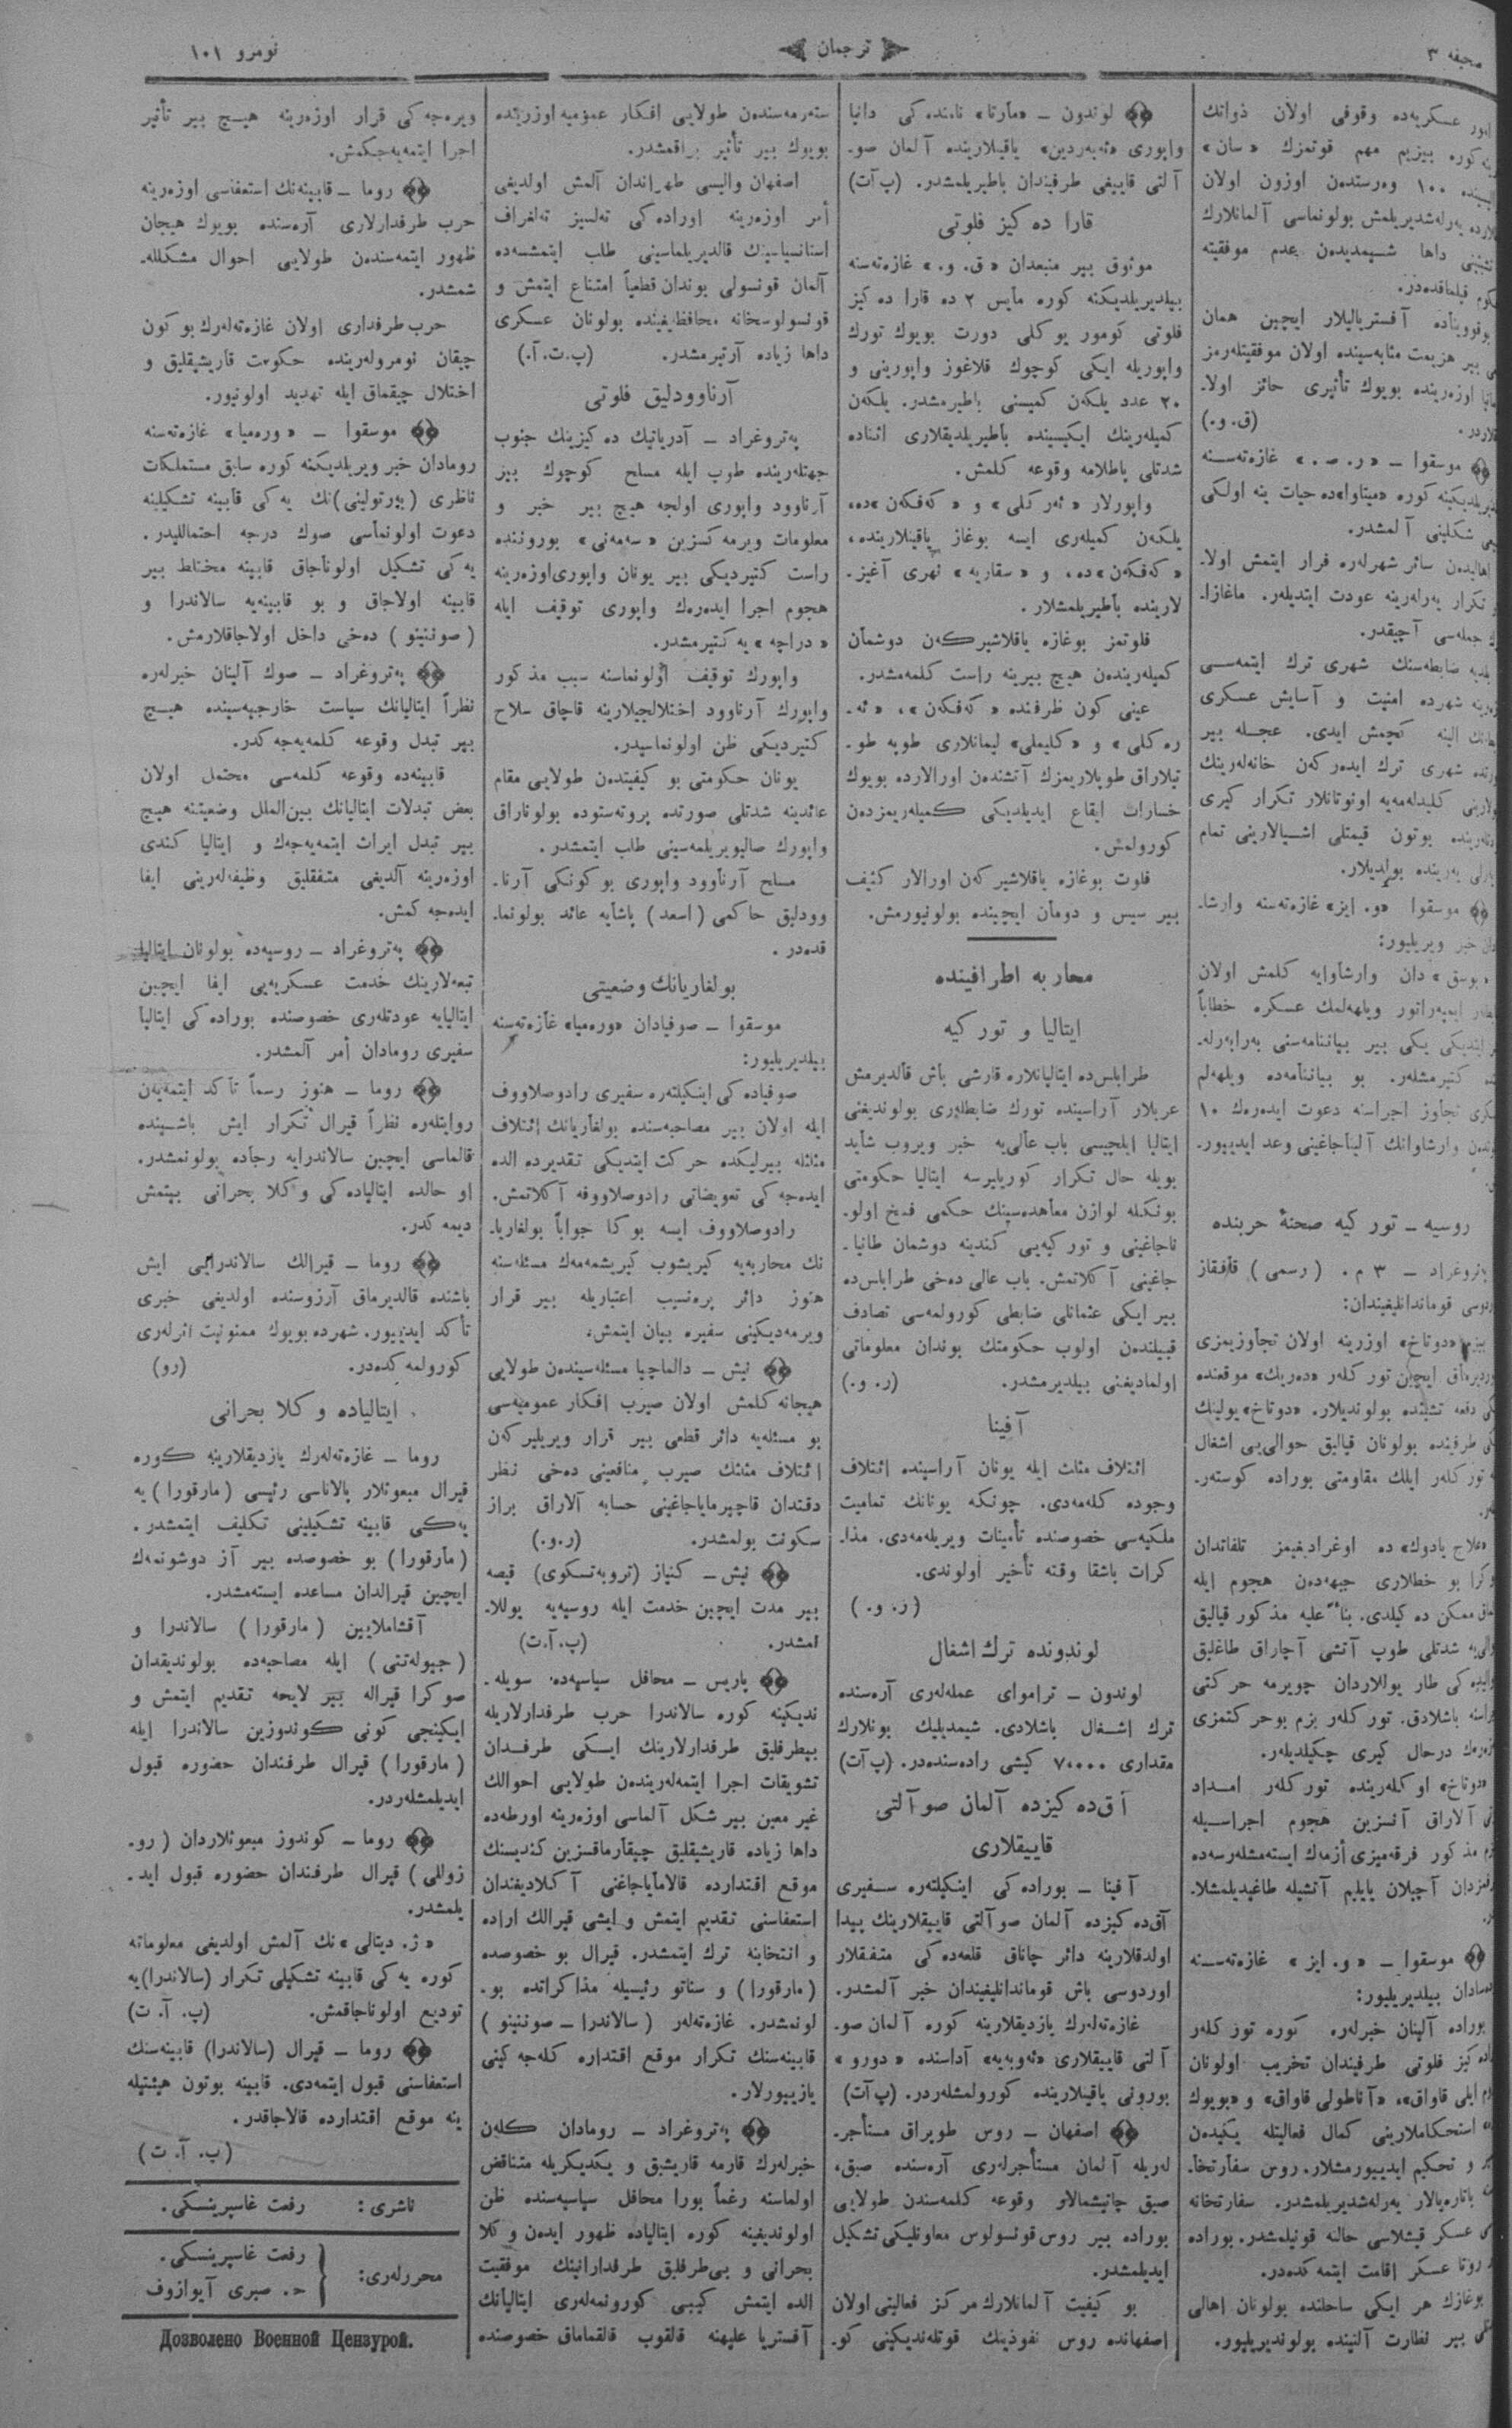 صحیفه ۳
ترجمان
نومرو ۱۰۱
عسكریه‌ده وقوفی اولان ذواتك
كوره بیزیم مهم قوتمزك «سان»
۱۰۰ وەرستدەن اوزون اولان
یەرلەشدیریلمش بولونماسی آلمانلارك
داها شیمدیدەن عدم موفقیته
آفستریالیلار ایچین همان
بیر هزیمت مثابه‌سینده اولان موفقیتلەرمز
اوزەرینده بویوك تأثیری حائز اولا-
(ق. و.)
موسقوا – «ر. ص.» غازەتەسنه
كوره «میتاوا»ده حیات ینه اولكی
شكلینی آلمشدر.
اهالیدەن سائر شهرلەره فرار ایتمش اولا-
تكرار یەرلەرینه عودت ایتدیلەر. ماغازا-
جمله‌سی آچیقدر.
ضابطه‌سنك شهری ترك ایتمه‌سی
شهرده امنیت و آسایش عسكری
الینه كچمش ایدی. عجله بیر
شهری ترك ایدەركەن خانه‌لەرینك
كلیدلەمەیه اونوتانلار تكرار كیری
بوتون قیمتلی اشیالارینی تمام
یەرینده بولدیلار.
موسقوا «و. ایز» غازەتەسنه وارشا-
خبر ویریلیور:
دان وارشاوایه كلمش اولان
ایمپەراتور ویلهەلمك عسكره خطاباً
یكی بیر بیاننامه‌سنی بەرابەرلە-
كتیرمشلەر. بو بیاننامه‌ده ویلهەلم
تجاوز اجراسنه دعوت ایدەرەك ۱۰
وارشاوانك آلیناجاغینی وعد ایدییور.
روسیه – توركیه صحنۀ حربنده
پەتروغراد – ۳ م. (رسمی) قافقاز
قوماندانلیغیندان:
«دوتاخ» اوزرینه اولان تجاوزیمزی
ایچین توركلەر «دەریك» موقعنده
دفعه تشبثده بولوندیلار. «دوتاخ» یولینك
طرفینده بولونان قیالیق حوالی‌یی اشغال
توركلەر ایلك مقاومتی بوراده كوستەر-
ده اوغرادیغیمز تلفاتدان
بو خطلاری جبهه‌دەن هجوم ایله
ممكن ده كیلدی. بناءً علیه مذكور قیالیق
شدتلی طوب آتشی آچاراق طاغلیق
طار یوللاردان چویرمه حركتی
باشلادق. توركلەر بزم بو حركتمزی
درحال كیری چكیلدیلەر.
«دوتاخ» اوكلەرینده توركلەر امداد
آلاراق آنسزین هجوم اجراسیله
مذكور فرقه‌میزی أزمەك ایستەمشلەرسەده
آچیلان یایلیم آتشیله طاغیدیلمشلا-
موسقوا – «و. ایز» غازەتەسنه
بیلدیریلیور:
بوراده آلینان خبرلەره كوره توركلەر
فلوتی طرفیندان تخریب اولونان
قاواق»، «آناطولی قاواق» و «بویوك
استحكاملارینی كمال فعالیتله یكیدەن
و تحكیم ایدییورمشلار. روس سفارتخا-
باتارەیالار یەرلەشدیریلمشدر. سفارتخانه
عسكر قیشلاسی حالنه قونیلمشدر. بوراده
عسكر اقامت ایتمەكدەدر.
بوغازك هر ایكی ساحلنده بولونان اهالی
بیر نظارت آلتینده بولوندیریلیور.
لوندون – «مارتا» نامنده كی دانیا
واپوری «ئەبەردین» یاقینلارینده آلمان صو-
آلتی قاییغی طرفیندان باطیریلمشدر. (پ آت)
قارا ده‌كیز فلوتی
موثوق بیر منبعدان «ق. و.» غازەتەسنه
بیلدیریلدیكنه كوره مایس ۲ ده قارا ده‌كیز
فلوتی كومور یوكلی دورت بویوك تورك
واپوریله ایكی كوچوك قلاغوز واپورینی و
۲۰ عدد یلكەن كمیسنی باطیرمشدر. یلكەن
كمیلەرینك ایكیسینده باطیریلدیقلاری اثناده
شدتلی پاطلامه وقوعه كلمش.
واپورلار «ئەركلی» و «كەفكەن»ده،
یلكەن كمیلەری ایسه بوغاز یاقینلارینده،
«كەفكەن»ده، و «سقاریه» نهری آغیز-
لارینده باطیریلمشلار.
فلوتمز بوغازه یاقلاشیركەن دوشمان
كمیلەریندەن هیچ بیرینه راست كلمەمشدر.
عینی كون ظرفنده «كەفكەن»، «ئە-
رەكلی» و «كلیملی» لیمانلاری طوپه طو-
تیلاراق طوپلاریمزك آتشندەن اورالارده بویوك
خسارات ایقاع ایدیلدیكی كمیلەریمزدەن
كورولمش.
فلوت بوغازه یاقلاشیركەن اورالار كثیف
بیر سیس و دومان ایچینده بولونیورمش.
محاربه اطرافینده
ایتالیا و توركیه
طرابلس‌ده ایتالیانلاره قارشی باش قالدیرمش
عربلار آراسینده تورك ضابطلەری بولوندیغنی
ایتالیا ایلچیسی باب عالی‌یه خبر ویروب شاید
بویله حال تكرار كوریلیرسه ایتالیا حكومتی
بونكله لوازن معاهده‌سینك حكمی فسخ اولو-
ناجاغینی و توركیه‌یی كندینه دوشمان طانیا-
جاغینی آكلاتمش. باب عالی ده‌خی طرابلس‌ده
بیر ایكی عثمانلی ضابطی كورولمه‌سی تصادف
قبیلندەن اولوب حكومتك بوندان معلوماتی
اولمادیغنی بیلدیرمشدر. (ر. و.)
آفینا
ائتلاف مثلث ایله یونان آراسینده ائتلاف
وجوده كلەمەدی. چونكه یونانك تمامیت
ملكیه‌سی خصوصنده تأمینات ویریلەمەدی. مذا-
كرات باشقا وقته تأخیر اولوندی.
(ر. و.)
لوندونده ترك اشغال
لوندون – تراموای عمله‌لەری آره‌سنده
ترك اشغال باشلادی. شیمدیلیك بونلارك
مقداری ۷۰۰۰۰ كیشی راده‌سنده‌در. (پ آت)
آق ده‌كیزده آلمان صو آلتی
قاییقلاری
آفینا – بوراده‌كی اینكیلتەره سفیری
آق ده‌كیزده آلمان صو آلتی قاییقلارینك پیدا
اولدقلارینه دائر چاناق قلعه‌ده‌كی متفقلار
اوردوسی باش قوماندانلیغیندان خبر آلمشدر.
غازەتەلەرك یازدیقلارینه كوره آلمان صو-
آلتی قاییقلاری «ئەوبەیه» آداسنده «دورو»
بورونی یاقینلارینده كورولمشلەردر. (پ آت)
اصفهان – روس طوپراق مستأجر-
لەریله آلمان مستأجرلەری آره‌سنده صیق،
صیق چاتیشمالار وقوعه كلمه‌سندن طولایی
بوراده بیر روس قونسولوس معاونلیكی تشكیل
ایدیلمشدر.
بو كیفیت آلمانلارك مركز فعالیتی اولان
اصفهانده روس نفوذینك قوتلەندیكینی كو-
ستەرمه‌سندەن طولایی افكار عمومیه اوزرینده
بویوك بیر تأثیر براقمشدر.
اصفهان والیسی طهراندان آلمش اولدیغی
أمر اوزەرینه اوراده‌كی تەلسیز تەلغراف
استانسیاسینك قالدیریلماسینی طلب ایتمشسەده
آلمان قونسولی بوندان قطعیاً امتناع ایتمش و
قونسولوسخانه محافظیغینده بولونان عسكری
داها زیاده آرتیرمشدر. (پ. ت. آ.)
آرناوودلیق فلوتی
پەتروغراد – آدریاتیك ده‌كیزینك جنوب
جهتلەرینده طوب ایله مسلح كوچوك بیر
آرناوود واپوری اولجه هیچ بیر خبر و
معلومات ویرمه‌كسزین «سەمەنی» بوروننده
راست كتیردیكی بیر یونان واپوری اوزەرینه
هجوم اجرا ایدەرەك واپوری توقیف ایله
«دراچه» یه كتیرمشدر.
واپورك توقیف اولونماسنه سبب مذكور
واپورك آرناوود اختلالجیلارینه قاچاق سلاح
كتیردیكی ظن اولونماسیدر.
یونان حكومتی بو كیفیتدەن طولایی مقام
عائدینه شدتلی صورتده پروتەستوده بولوناراق
واپورك صالیویریلمه‌سینی طلب ایتمشدر.
مسلح آرناوود واپوری بوكونكی آرنا-
وودلیق حاكمی (اسعد) پاشایه عائد بولونما-
قده‌در.
بولغاریانك وضعیتی
موسقوا – صوفیادان «ورەمیا» غازەتەسنه
بیلدیریلیور:
صوفیاده‌كی اینكیلتەره سفیری رادوصلاووف
ایله اولان بیر مصاحبه‌سنده بولغاریانك ائتلاف
مثلثله بیرلیكده حركت ایتدیكی تقدیرده الده
ایده‌جه‌كی تعویضاتی رادوصلاووفه آكلاتمش.
رادوصلاووف ایسه بوكا جواباً بولغاریا-
نك محاربه‌یه كیریشوب كیریشمەمەك مسئله‌سنه
هنوز دائر پرەنسیب اعتباریله بیر قرار
ویرمەدیكینی سفیره بیان ایتمش.
نیش – دالماچیا مسئله‌سیندەن طولایی
هیجانه كلمش اولان صیرب افكار عمومیه‌سی
بو مسئله‌یه دائر قطعی بیر قرار ویریلیركەن
ائتلاف مثلثك صیرب منافعینی ده‌خی نظر
دقتدان قاچیرمایاجاغینی حسابه آلاراق براز
سكونت بولمشدر. (ر. و.)
نیش – كنیاز (تروبەتسكوی) قیصه
بیر مدت ایچین خدمت ایله روسیه‌یه یوللا-
نمشدر. (پ. آ. ت)
پاریس – محافل سیاسیه‌ده سویله-
ندیكینه كوره سالاندرا حرب طرفدارلاریله
بیطرفلیق طرفدارلارینك ایسكی طرفدان
تشویقات اجرا ایتمه‌لەریندەن طولایی احوالك
غیر معین بیر شكل آلماسی اوزەرینه اورطه‌ده
داها زیاده قاریشیقلیق چیقارماقسزین كندیسنك
موقع اقتدارده قالامایاجاغنی آكلادیغندان
استعفاسنی تقدیم ایتمش و ایشی قیرالك اراده
و انتخابنه ترك ایتمشدر. قیرال بو خصوصده
(مارقورا) و سناتو رئیسیله مذاكراتده بو-
لونمشدر. غازەتەلەر (سالاندرا – صوننینو)
قابینه‌سنك تكرار موقع اقتداره كله‌جه‌كینی
یازییورلار.
پەتروغراد – رومادان كلەن
خبرلەرك قارمه قاریشیق و یكدیكریله متناقض
اولماسنه رغماً بورا محافل سیاسیه‌سنده ظن
اولوندیغینه كوره ایتالیاده ظهور ایدەن وكلا
بحرانی و بی‌طرفلیق طرفدارانینك موفقیت
الده ایتمش كیبی كورونمه‌لەری ایتالیانك
آفستریا علیهنه قالقوب قالقماماق خصوصنده
ویره‌جه‌كی قرار اوزەرینه هیچ بیر تأثیر
اجرا ایتمەیەجكمش.
روما – قابینه‌نك استعفاسی اوزەرینه
حرب طرفدارلاری آره‌سنده بویوك هیجان
ظهور ایتمه‌سندەن طولایی احوال مشكلله-
شمشدر.
حرب طرفداری اولان غازەتەلەرك بوكون
چیقان نومرولەرینده حكومت قاریشیقلیق و
اختلال چیقماق ایله تهدید اولونیور.
موسقوا – «ورەمیا» غازەتەسنه
رومادان خبر ویریلدیكنه كوره سابق مستملكات
ناظری (بەرتولینی)نك یەكی قابینه تشكیلینه
دعوت اولونماسی صوك درجه احتماللیدر.
یەكی تشكیل اولوناجاق قابینه مختلط بیر
قابینه اولاجاق و بو قابینه‌یه سالاندرا و
(صوننینو) ده‌خی داخل اولاجاقلارمش.
پەتروغراد – صوك آلینان خبرلەره
نظراً ایتالیانك سیاست خارجیه‌سینده هیچ
بیر تبدل وقوعه كلمەیەجەكدر.
قابینه‌ده وقوعه كلمه‌سی محتمل اولان
بعض تبدلات ایتالیانك بین‌الملل وضعیتنه هیچ
بیر تبدل ایراث ایتمەیەجەك و ایتالیا كندی
اوزەرینه آلدیغی متفقلیق وظیفه‌لەرینی ایفا
ایدەجەكمش.
پەتروغراد – روسیه‌ده بولونان ایتالیا
تبعه‌لارینك خدمت عسكریه‌یی ایفا ایچین
ایتالیایه عودتلەری خصوصنده بوراده‌كی ایتالیا
سفیری رومادان أمر آلمشدر.
روما – هنوز رسماً تأكد ایتمەیەن
روایتلەره نظراً قیرال تكرار ایش باشینده
قالماسی ایچین سالاندرایه رجاده بولونمشدر.
او حالده ایتالیاده‌كی وكلا بحرانی بیتمش
دیمەكدر.
روما – قیرالك سالاندرایی ایش
باشنده قالدیرماق آرزوسنده اولدیغی خبری
تأكد ایدییور. شهرده بویوك ممنونیت اثرلەری
كورولمەكدەدر. (رو)
ایتالیاده وكلا بحرانی
روما – غازەتەلەرك یازدیقلارینه كوره
قیرال مبعوثلار پالاتاسی رئیسی (مارقورا)یه
یەكی قابینه تشكیلینی تكلیف ایتمشدر.
(مارقورا) بو خصوصده بیر آز دوشونمەك
ایچین قیرالدان مساعده ایستەمشدر.
آقشاملایین (مارقورا) سالاندرا و
(جیولەتتی) ایله مصاحبه‌ده بولوندیقدان
صوكرا قیراله بیر لایحه تقدیم ایتمش و
ایكینجی كونی كوندوزین سالاندرا ایله
(مارقورا) قیرال طرفندان حضوره قبول
ایدیلمشلەردر.
روما – كوندوز مبعوثلاردان (رو-
زوللی) قیرال طرفندان حضوره قبول ایدـ
یلمشدر.
«ژ. دیتالی»نك آلمش اولدیغی معلوماته
كوره یەكی قابینه تشكیلی تكرار (سالاندرا)یه
تودیع اولوناجاقمش. (پ. آ. ت)
روما – قیرال (سالاندرا) قابینه‌سنك
استعفاسنی قبول ایتمەدی. قابینه بوتون هیئتیله
ینه موقع اقتدارده قالاجاقدر.
(پ. آ. ت)
ناشری: رفعت غاسپرینسكی.
محررلەری: رفعت غاسپرینسكی.
ح. صبری آیوازوف
Дозволено Военной Цензурой.